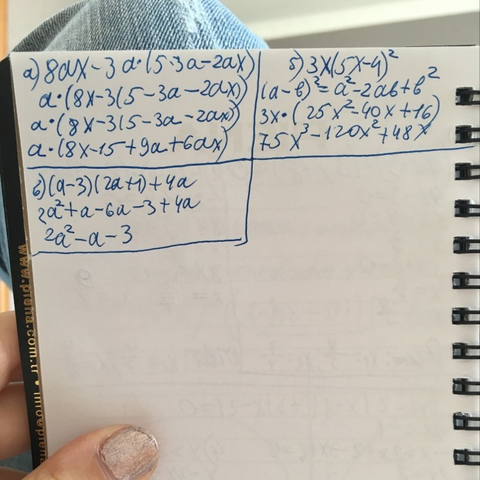 а) 8ax-3a·(5-3a-2ax)
a·(8x-3(5-3a-2ax))
a·(8x-3(5-3a-2ax))
a·(8x-15+9a+6ax)
б) 3x(5x-4)²
(a-b)²=a²-2ab+b²
3x·(25x²-40x+16)
75x³-120x²+48x
в) (a-3)(2a+1)+4a
2a²+a-6a-3+4a
2a²-a-3
www.piena.com.tr • info@piena